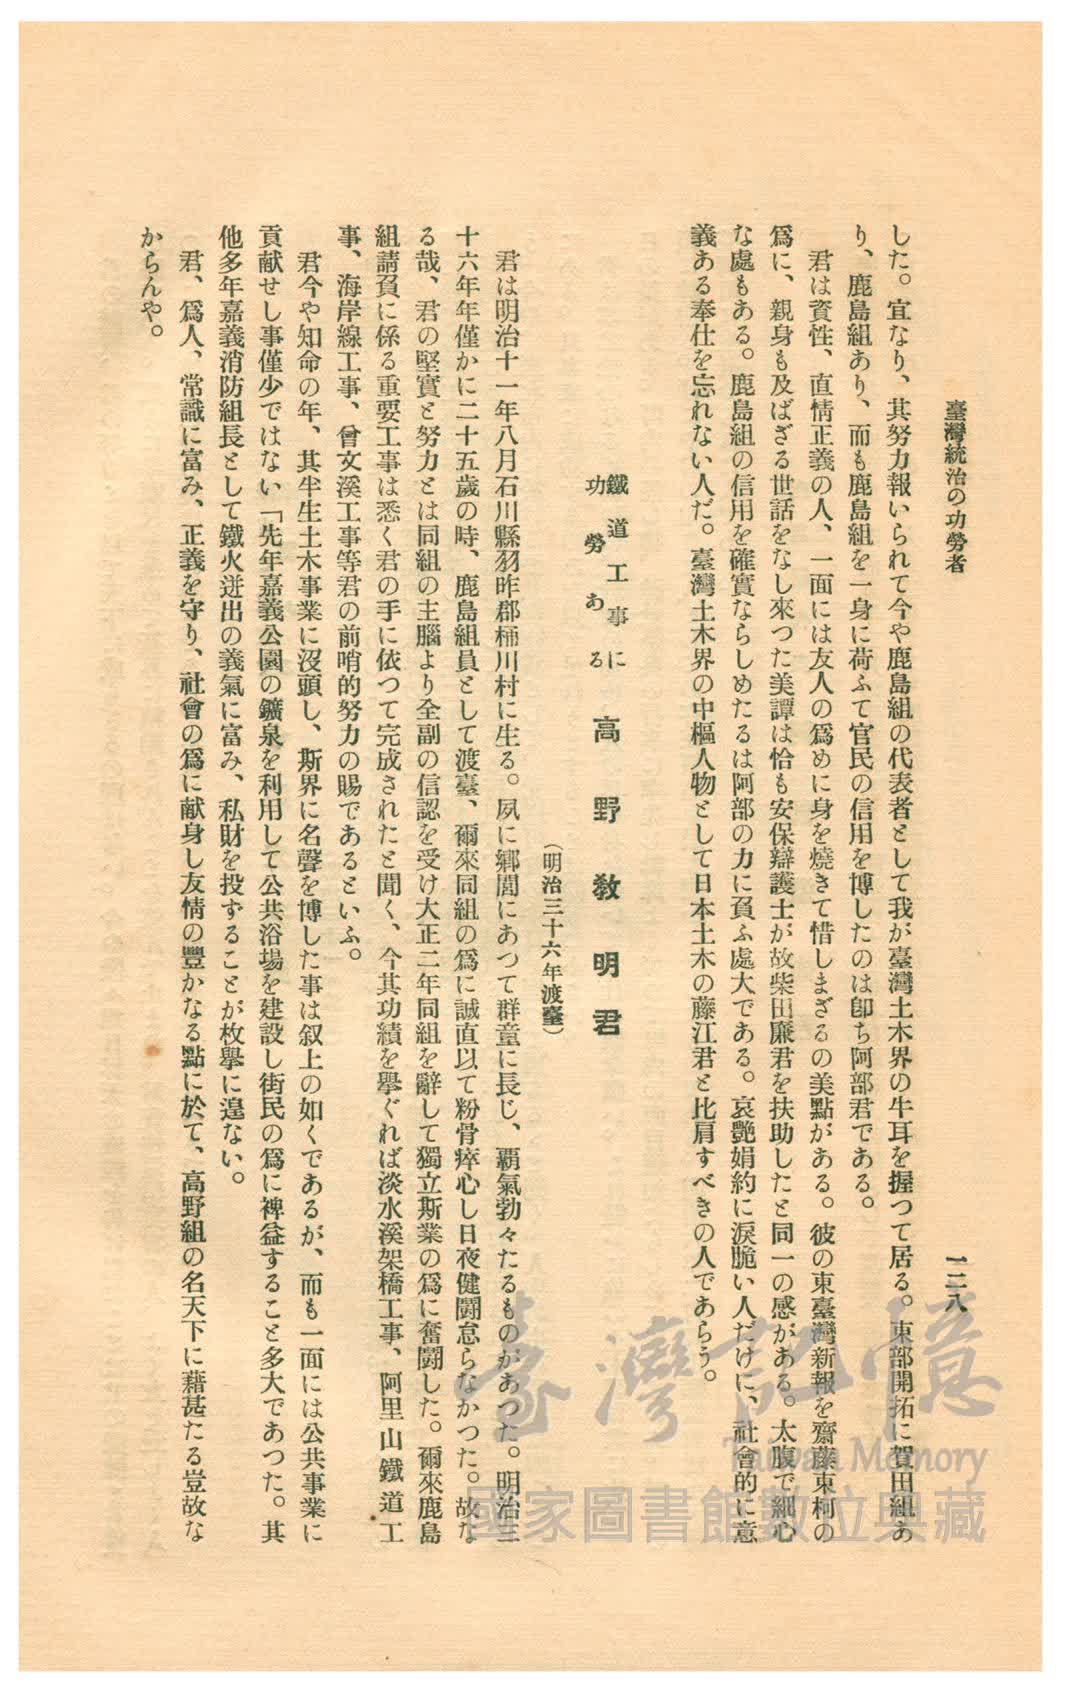 臺灣統治の功勞者
一二八
した。宜なり、其努力報いられて今や鹿島組の代表者として我が臺灣土木界の牛耳を握つて居る。東部開拓に賀田組あ
り、鹿島組あり、而も鹿島組を一身に荷ふて官民の信用を博したのは卽ち阿部君である。
君は資性、直情正義の人、一面には友人の爲めに身を燒きて惜しまざるの美點がある。彼の東臺灣新報を齋藤東柯の
爲に、親身も及ばざる世話をなし來つた美譚は恰も安保辯護士が故柴田廉君を扶助したと同一の感がある。太腹で細心
な處もある。鹿島組の信用を確實ならしめたるは阿部の力に負ふ處大である。哀艷娟約に淚脆い人だけに、社會的に意
義ある奉仕を忘れない人だ。臺灣土木界の中樞人物として日本土木の藤江君と比肩すべきの人であらう。
鐵道工事に
功勞ある
高野敎明君
（明治三十六年渡臺）
君は明治十一年八月石川縣羽昨郡桶川村に生る。夙に鄕閭にあつて群童に長じ、覇氣勃々たるものがあつた。明治三
十六年年僅かに二十五歲の時、鹿島組員として渡臺、爾來同組の爲に誠直以て粉骨瘁心し日夜健鬪怠らなかつた。故な
る哉、君の堅實と努力とは同組の主腦より全副の信認を受け大正二年同組を辭して獨立斯業の爲に奮鬪した。爾來鹿島
組請負に係る重要工事は悉く君の手に依つて完成されたと聞く、今其功績を擧ぐれば淡水溪架橋工事、阿里山鐵道工
事、海岸線工事、曾文溪工事等君の前哨的努力の賜であるといふ。
君今や知命の年、其半生土木事業に沒頭し、斯界に名聲を博した事は叙上の如くであるが、而も一面には公共事業に
貢献せし事僅少ではない「先年嘉義公園の鑛泉を利用して公共浴場を建設し街民の爲に裨益すること多大であつた。其
他多年嘉義消防組長として鐵火迸出の義氣に富み、私財を投ずることが枚擧に遑ない。
君、爲人、常識に富み、正義を守り、社會の爲に献身し友情の豐かなる點に於て、高野組の名天下に藉甚たる豈故な
からんや。
臺灣記憶
Taiwan Memory
國家圖書館數位典藏